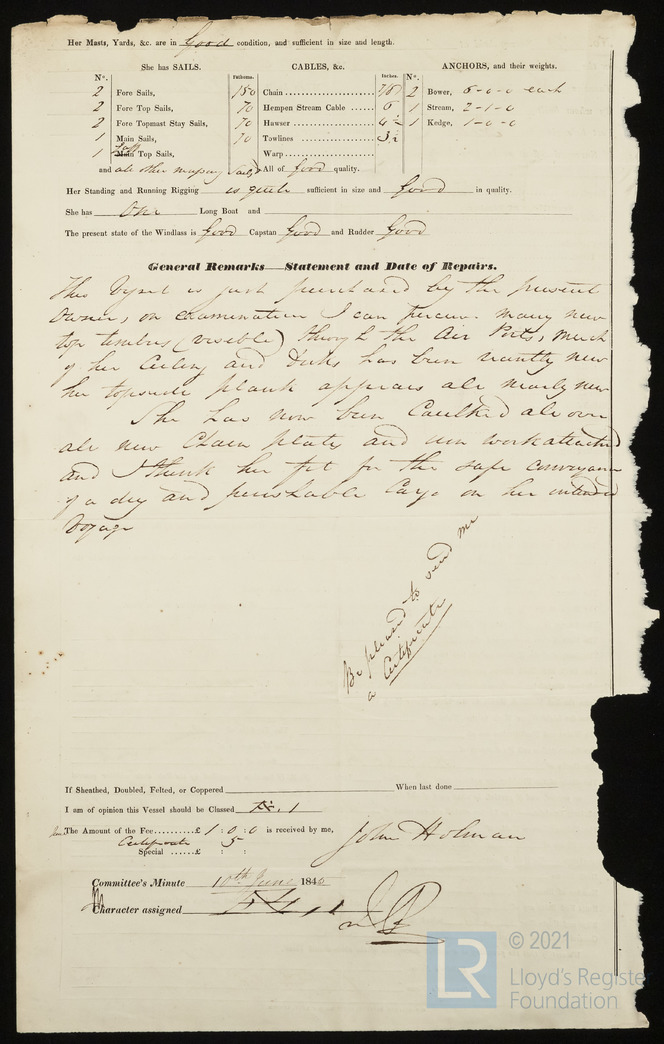 Her Masts, Yards, &c. are in Good condition, and sufficient in size and length.
She has SAILS. CABLES, &c. ANCHORS, and their weights.
No. Fathoms. Inches. No.
2 Fore Sails, 150 Chain 7/8 2 Bower, 6-0-0 each
2 Fore Top Sails, 70 Hempen Stream Cable 6 1 Stream, 2-1-0
2 Fore Topmast Stay Sails, 70 Hawser 4½ 1 Kedge, 1-0-0
1 Main Sails, 70 Towlines 3½
1 Main Top Sails, Warp
and all other Sails All of Good quality.
Her Standing and Running Rigging is quite sufficient in size and Good in quality.
She has One Long Boat and
The present state of the Windlass is Good Capstan Good and Rudder Good
General Remarks—Statement and Date of Repairs.
This Vessel is just purchased by the present
Owners, on examination I can perceive many new
top timbers (visible) through the Air Ports, much
of her Ceiling and Decks has been recently new
her topside plank appears all nearly new
She has now been Caulked all over
all new Chain plates and iron work attached
and I think her fit for the safe conveyance
of a dry and perishable Cargo on her intended
Voyage
Be pleased to send me
a Certificate
If Sheathed, Doubled, Felted, or Coppered When last done
I am of opinion this Vessel should be Classed 1
The Amount of the Fee £ 1 : 0 : 0 is received by me,
Certificate 5
Special £ : :
John Holman
Committee's Minute 10th June 184
Character assigned
LR
© 2021
Lloyd's Register
Foundation